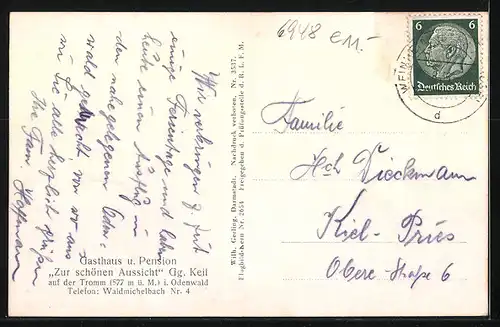 6948 €11.-
6 6
Deutsches Reich
WEIN
d
Wir verbringen z. Zeit
einige Ferientage und haben
heute einen Ausflug in
den nahe gelegenen Oden-
wald gemacht von wo aus
wir Sie alle herzlich grüßen
Ihre Fam. Hoffmann
Gasthaus u. Pension
„Zur schönen Aussicht“ Gg. Keil
auf der Tromm (577 m ü. M.) i. Odenwald
Telefon: Waldmichelbach Nr. 4
Wilh. Gerling, Darmstadt. Nachdruck verboten. Nr. 3537.
Flugbild-Kein Nr. 2654 Freigegeben d. Prüfungsstelle d. R. L. F. M.
Familie
Hch Dieckmann
Kiel-Pries
Obere-Straße 6